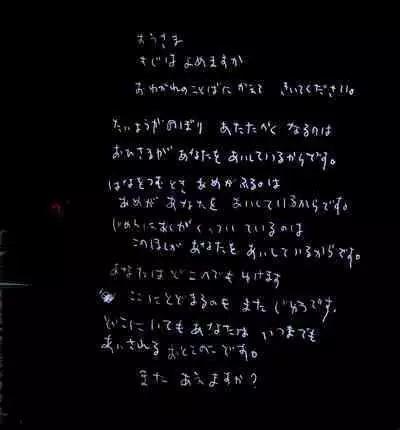 おうさま
もじは よめますか
おわかれのことばに かえて きいてください。
たいようがのぼり あたたかく なるのは
おひさまが あなたを あいしているからです。
はなをつむとき あめが ふるのは
あめが あなたを あいしているからです。
じめんにあしが くっついているのは
このほしが あなたを あいしているからです。
あなたは どこへでも ゆけます
ここにとどまるのも また じゆうです。
どこにいても あなたは いつまでも
あいされる おとこのこです。
また あえますか?